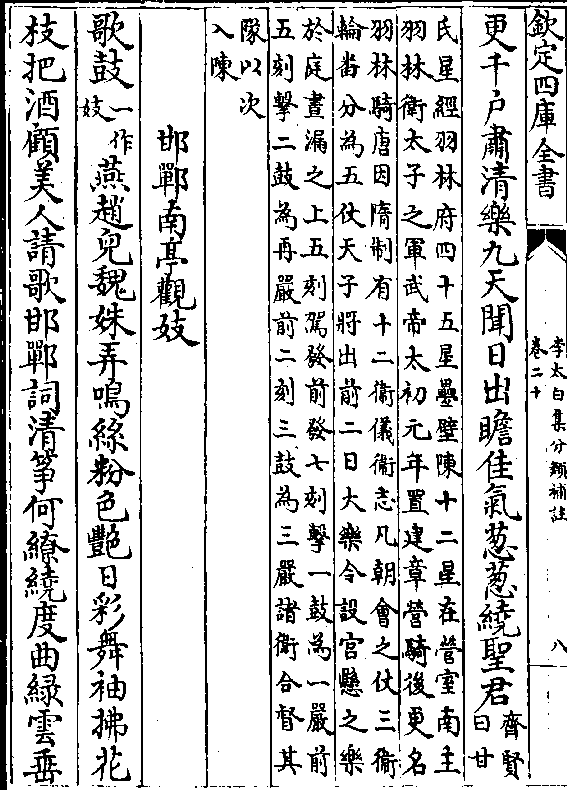 欽定四庫全書
李太白集分類補註
卷二十
八
更千戸肅清樂九天聞日出瞻佳氣葱葱繞聖君齊賢
曰甘
氏星經羽林府四十五星壘壁陳十二星在營室南主
羽林衛太子之軍武帝太初元年置建章營騎後更名
羽林騎唐因隋制有十二衞儀衛志凡朝會之仗三衛
輪畨分為五仗天子將出前二日大樂令設宫懸之樂
於庭晝漏之上五刻駕發前發七刻擊一鼓為一嚴前
五刻擊二鼓為再嚴前二刻三鼓為三嚴諸衛合督其
隊以次
入陳
邯鄲南亭觀妓
歌鼓一作
妓燕趙兒魏姝弄鳴絲粉色艷日彩舞袖拂花
枝把酒顧美人請歌邯鄲詞清筝何繚繞度曲緑雲垂